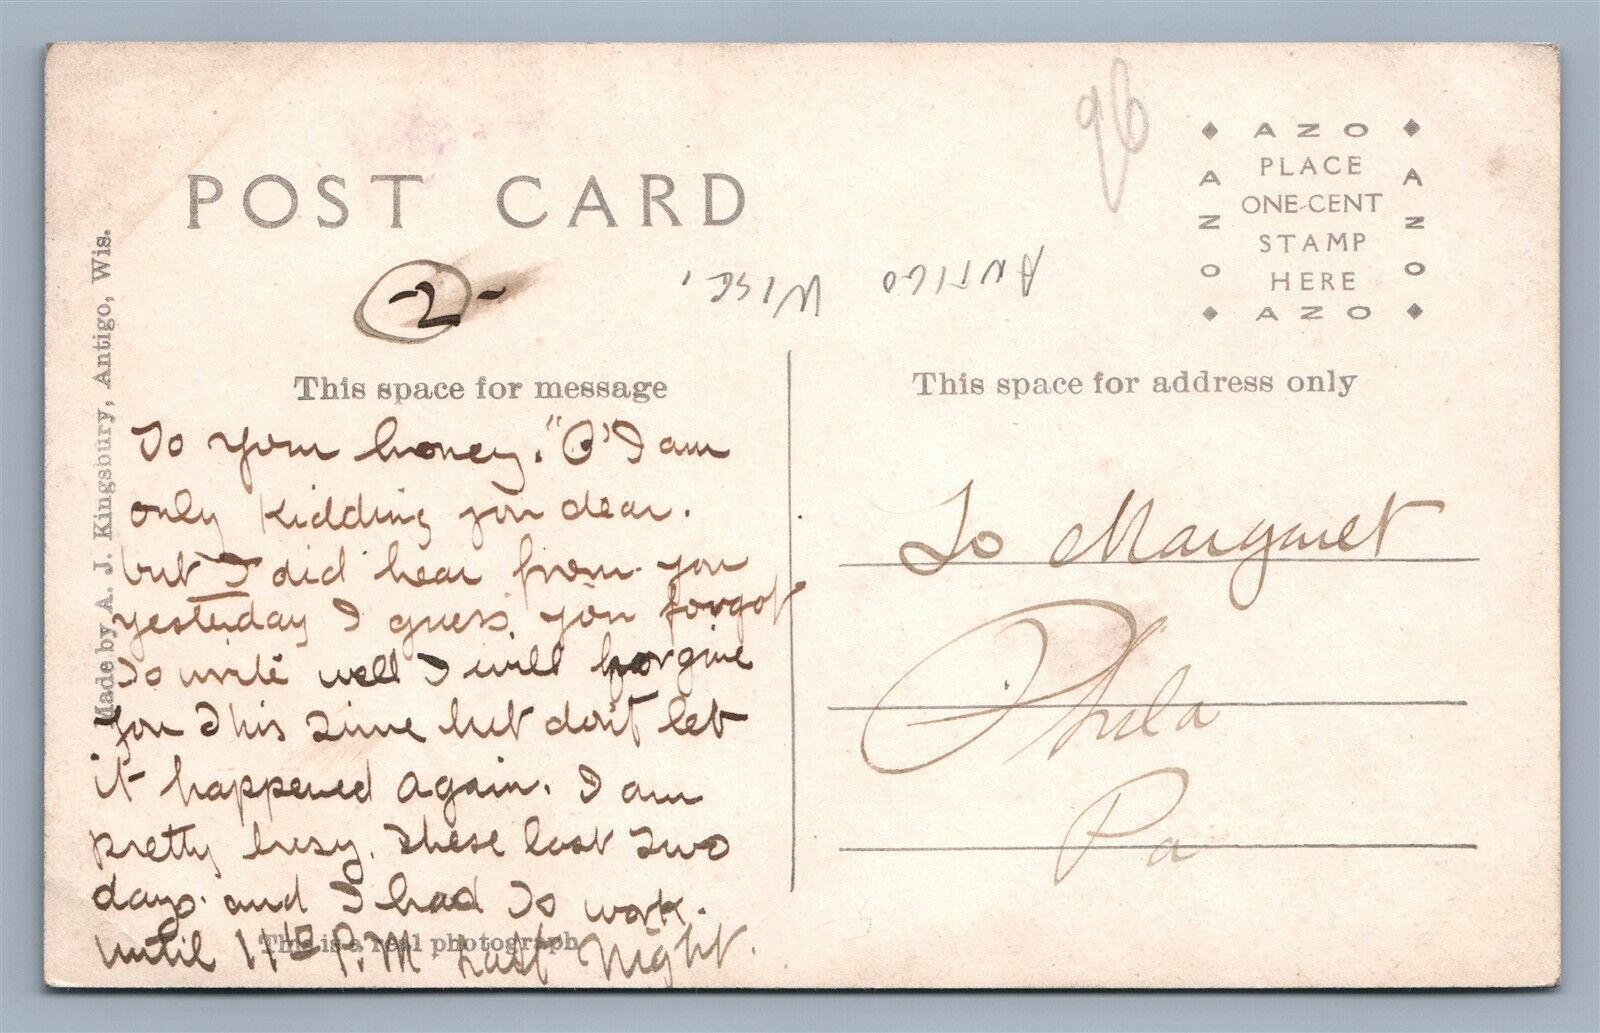 POST CARD
96
AZO
PLACE
ONE-CENT
STAMP
HERE
AZO
AZO
AZO
ANTIGO WISC,
-2-
Made by A. J. Kingsbury, Antigo, Wis.
This space for message
This space for address only
To your honey. "O" I am
only kidding you dear.
but I did hear from you
yesterday I guess you forgot
to write well I will forgive
you this time but don't let
it happened again. I am
pretty busy. these last two
days. and I had to work.
until 11 P.M Last Night.
This is a real photograph
To Margaret
Phila
Pa